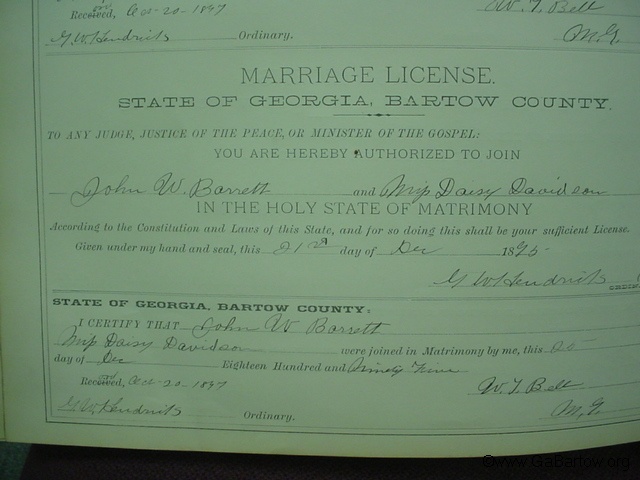 Received, Oct-20-1897 W. T. Belt
G. W. Hendricks Ordinary. M.G.
MARRIAGE LICENSE.
STATE OF GEORGIA, BARTOW COUNTY.
TO ANY JUDGE, JUSTICE OF THE PEACE, OR MINISTER OF THE GOSPEL:
YOU ARE HEREBY AUTHORIZED TO JOIN
John W. Barrett and Miss Daisy Davidson
IN THE HOLY STATE OF MATRIMONY
According to the Constitution and Laws of this State, and for so doing this shall be your sufficient License.
Given under my hand and seal, this 21st day of Dec 1895
G W Hendricks
STATE OF GEORGIA, BARTOW COUNTY:
I CERTIFY THAT John W Barrett
Miss Daisy Davidson were joined in Matrimony by me, this 25
day of Dec Eighteen Hundred and Ninety Five
Received, Oct-20-1897 W. T. Belt
G. W. Hendricks Ordinary. M.G.
©www.GaBartow.org